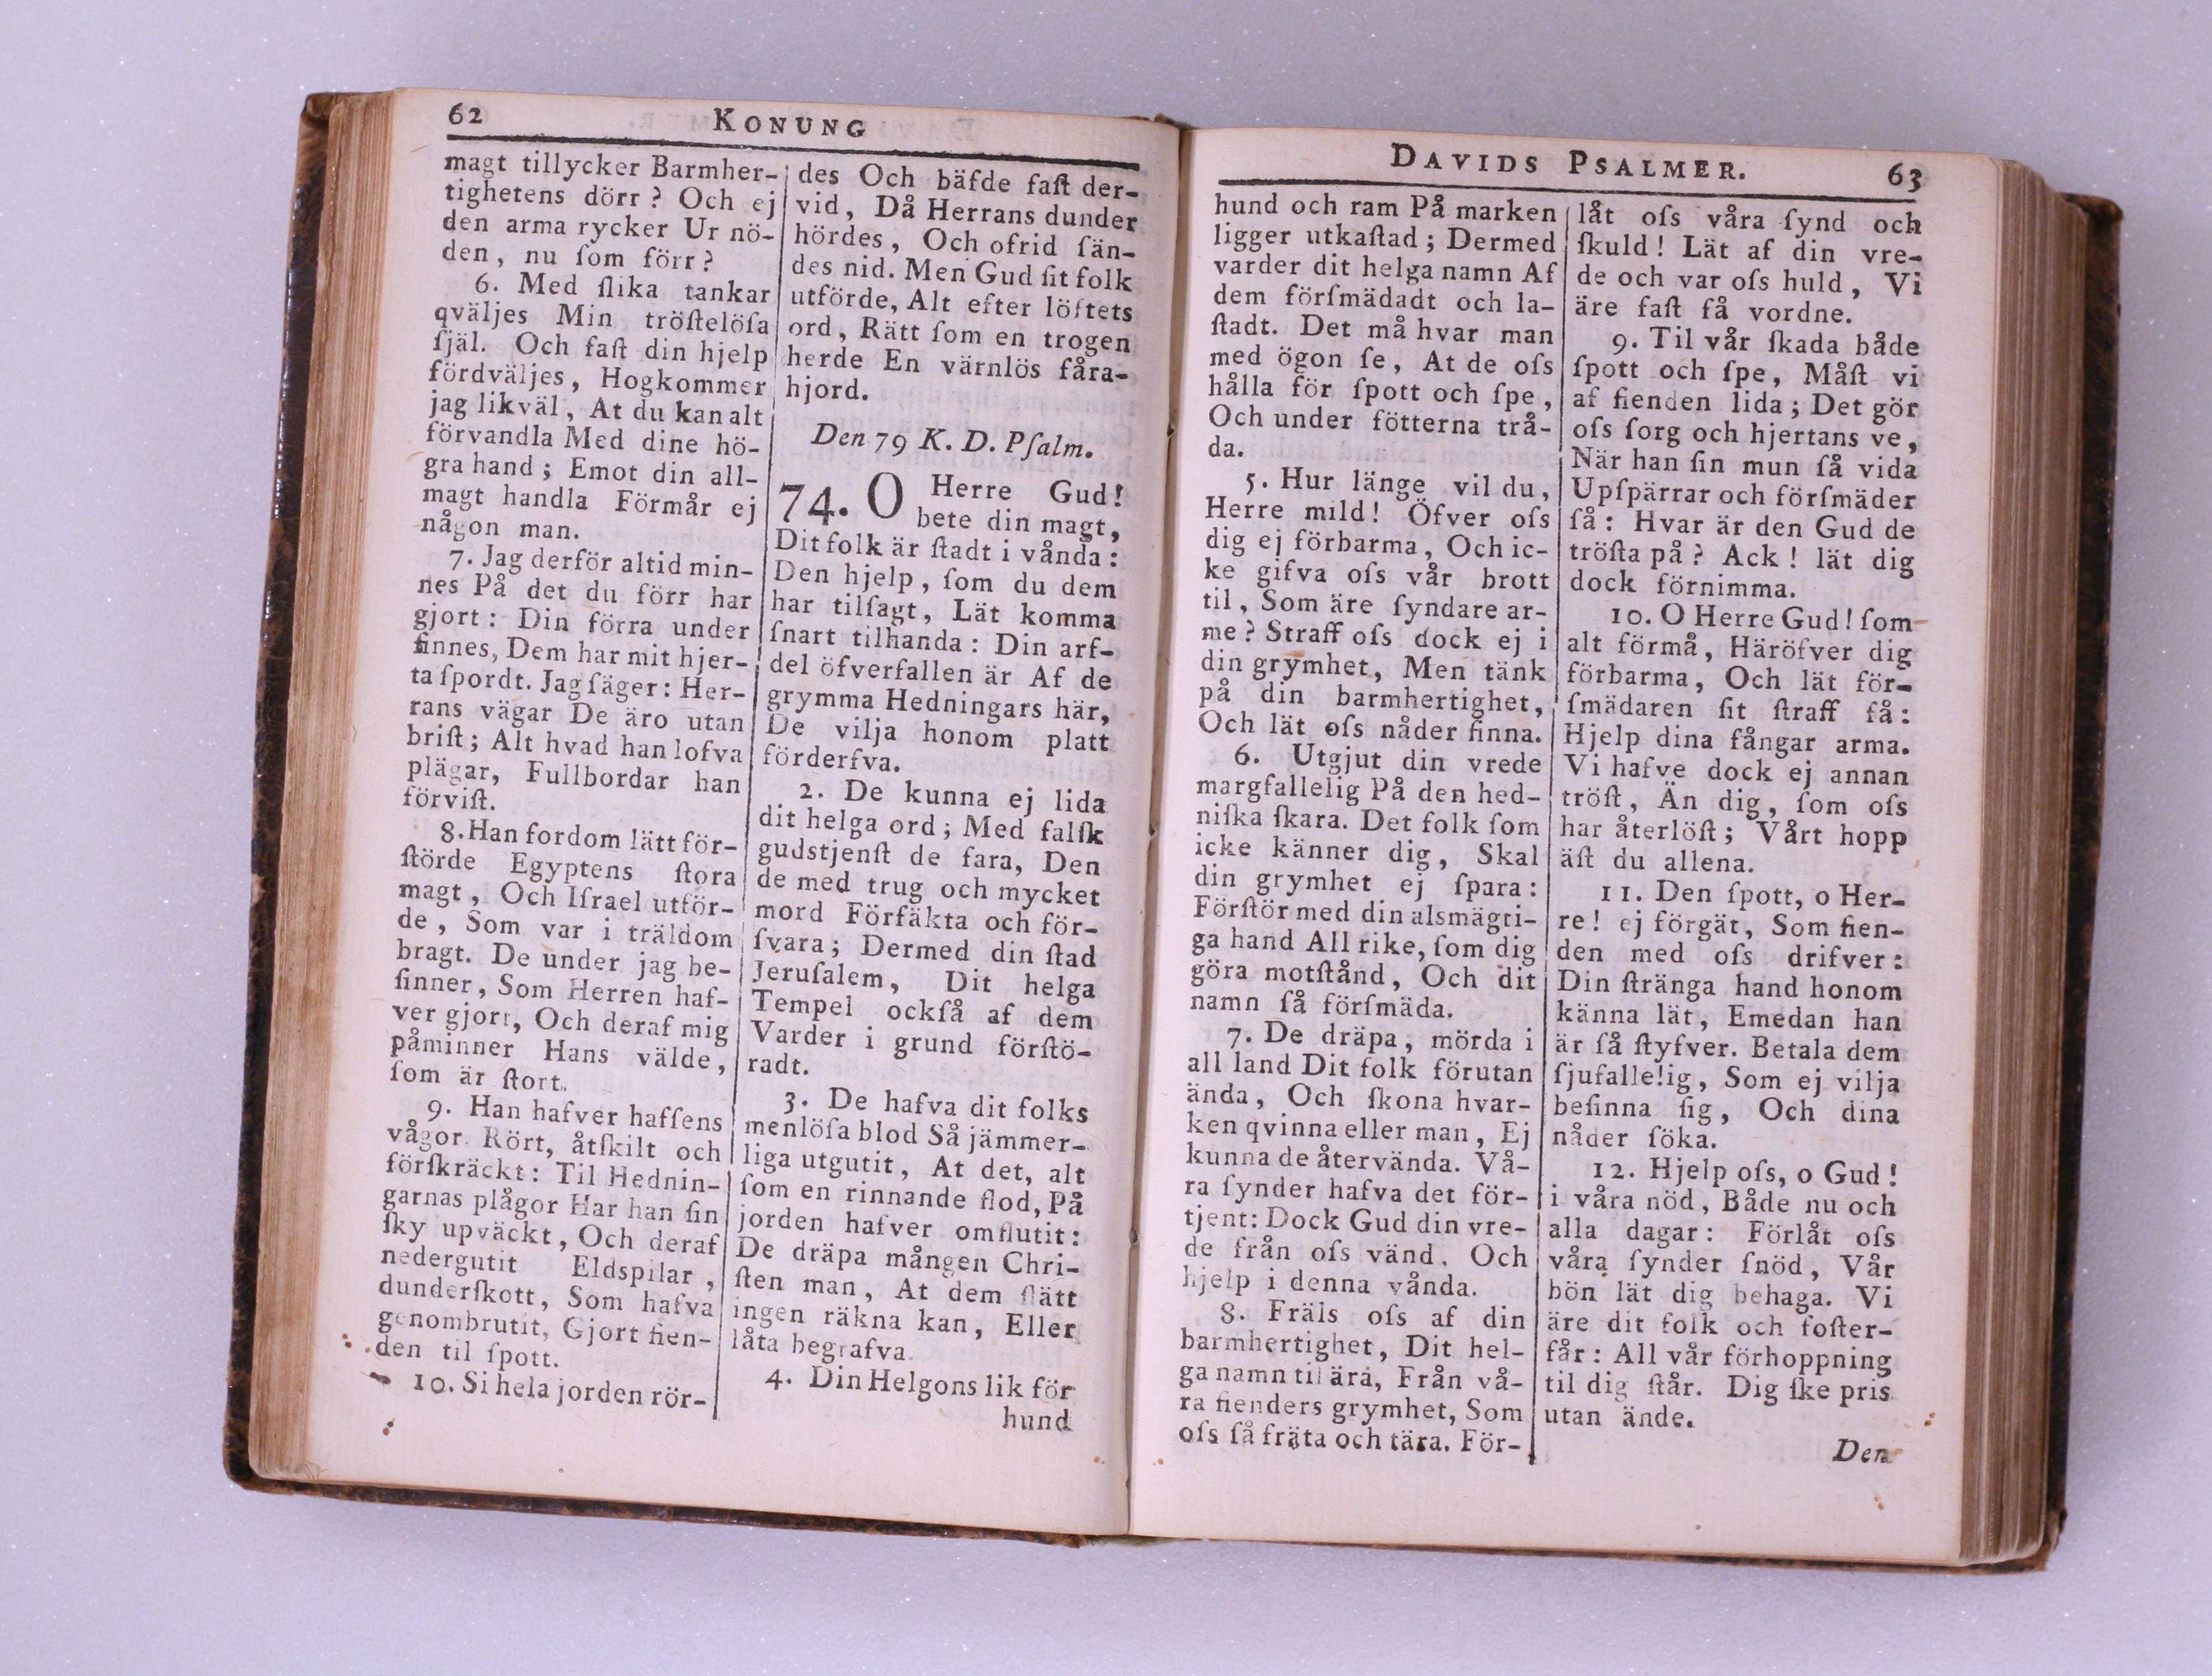 62 KONUNG
magt tillycker Barmher-
tighetens dörr? Och ej
den arma rycker Ur nö-
den, nu ſom förr?
6. Med ſlika tankar
qväljes Min tröſtelöſa
ſjäl. Och faſt din hjelp
fördväljes, Hogkommer
jag likväl, At du kan alt
förvandla Med dine hö-
gra hand; Emot din all-
magt handla Förmår ej
någon man.
7. Jag derför altid min-
nes På det du förr har
gjort: Din förra under
finnes, Dem har mit hjer-
ta ſpordt. Jag ſäger: Her-
rans vägar De äro utan
briſt; Alt hvad han lofva
plägar, Fullbordar han
förviſt.
8. Han fordom lätt för-
ſtörde Egyptens ſtora
magt, Och Iſrael utför-
de, Som var i träldom
bragt. De under jag be-
ſinner, Som Herren haf-
ver gjort, Och deraf mig
påminner Hans välde,
ſom är ſtort.
9. Han hafver haffens
vågor Rört, åtſkilt och
förſkräckt: Til Hednin-
garnas plågor Har han ſin
ſky upväckt, Och deraf
nedergutit Eldspilar,
dunderſkott, Som hafva
genombrutit, Gjort fien-
den til ſpott.
10. Si hela jorden rör-
des Och bäfde faſt der-
vid, Då Herrans dunder
hördes, Och ofrid ſän-
des nid. Men Gud ſit folk
utförde, Alt efter löftets
ord, Rätt ſom en trogen
herde En värnlös fåra-
hjord.
Den 79 K. D. Pſalm.
74. O Herre Gud!
bete din magt,
Dit folk är ſtadt i vånda:
Den hjelp, ſom du dem
har tilſagt, Lät komma
ſnart tilhanda: Din arf-
del öfverfallen är Af de
grymma Hedningars här,
De vilja honom platt
förderfva.
2. De kunna ej lida
dit helga ord; Med falſk
gudstjenſt de fara, Den
de med trug och mycket
mord Förfäkta och för-
ſvara; Dermed din ſtad
Jeruſalem, Dit helga
Tempel ockſå af dem
Varder i grund förſtö-
radt.
3. De hafva dit folks
menlöſa blod Så jämmer-
liga utgutit, At det, alt
ſom en rinnande flod, På
jorden hafver omflutit:
De dräpa mången Chri-
ſten man, At dem ſlätt
ingen räkna kan, Eller
låta begrafva.
4. Din Helgons lik för
hund
DAVIDS PSALMER. 63
hund och ram På marken
ligger utkaſtad; Dermed
varder dit helga namn Af
dem förſmädadt och la-
ſtadt. Det må hvar man
med ögon ſe, At de oſs
hålla för ſpott och ſpe,
Och under fötterna trå-
da.
5. Hur länge vil du,
Herre mild! Öfver oſs
dig ej förbarma, Och ic-
ke gifva oſs vår brott
til, Som äre ſyndare ar-
me? Straff oſs dock ej i
din grymhet, Men tänk
på din barmhertighet,
Och lät oſs nåder finna.
6. Utgjut din vrede
margfallelig På den hed-
niſka ſkara. Det folk ſom
icke känner dig, Skal
din grymhet ej ſpara:
Förſtör med din alsmägti-
ga hand All rike, ſom dig
göra motſtånd, Och dit
namn ſå förſmäda.
7. De dräpa, mörda i
all land Dit folk förutan
ända, Och ſkona hvar-
ken qvinna eller man, Ej
kunna de återvända. Vå-
ra ſynder hafva det för-
tjent: Dock Gud din vre-
de från oſs vänd, Och
hjelp i denna vånda.
8. Fräls oſs af din
barmhertighet, Dit hel-
ga namn til ära, Från vå-
ra fienders grymhet, Som
oſs ſå fräta och tära. För-
låt oſs våra ſynd och
ſkuld! Lät af din vre-
de och var oſs huld, Vi
äre faſt få vordne.
9. Til vår ſkada både
ſpott och ſpe, Måſt vi
af fienden lida; Det gör
oſs ſorg och hjertans ve,
När han ſin mun ſå vida
Upſpärrar och förſmäder
ſå: Hvar är den Gud de
tröſta på? Ack! lät dig
dock förnimma.
10. O Herre Gud! ſom
alt förmå, Häröfver dig
förbarma, Och lät för-
ſmädaren ſit ſtraff få:
Hjelp dina fångar arma.
Vi hafve dock ej annan
tröſt, Än dig, ſom oſs
har återlöſt; Vårt hopp
äſt du allena.
11. Den ſpott, o Her-
re! ej förgät, Som fien-
den med oſs drifver:
Din ſtränga hand honom
känna lät, Emedan han
är ſå ſtyfver. Betala dem
ſjufallelig, Som ej vilja
beſinna ſig, Och dina
nåder ſöka.
12. Hjelp oſs, o Gud!
i våra nöd, Både nu och
alla dagar: Förlåt oſs
våra ſynder ſnöd, Vår
bön lät dig behaga. Vi
äre dit folk och foſter-
får: All vår förhoppning
til dig ſtår. Dig ſke pris
utan ände.
Den